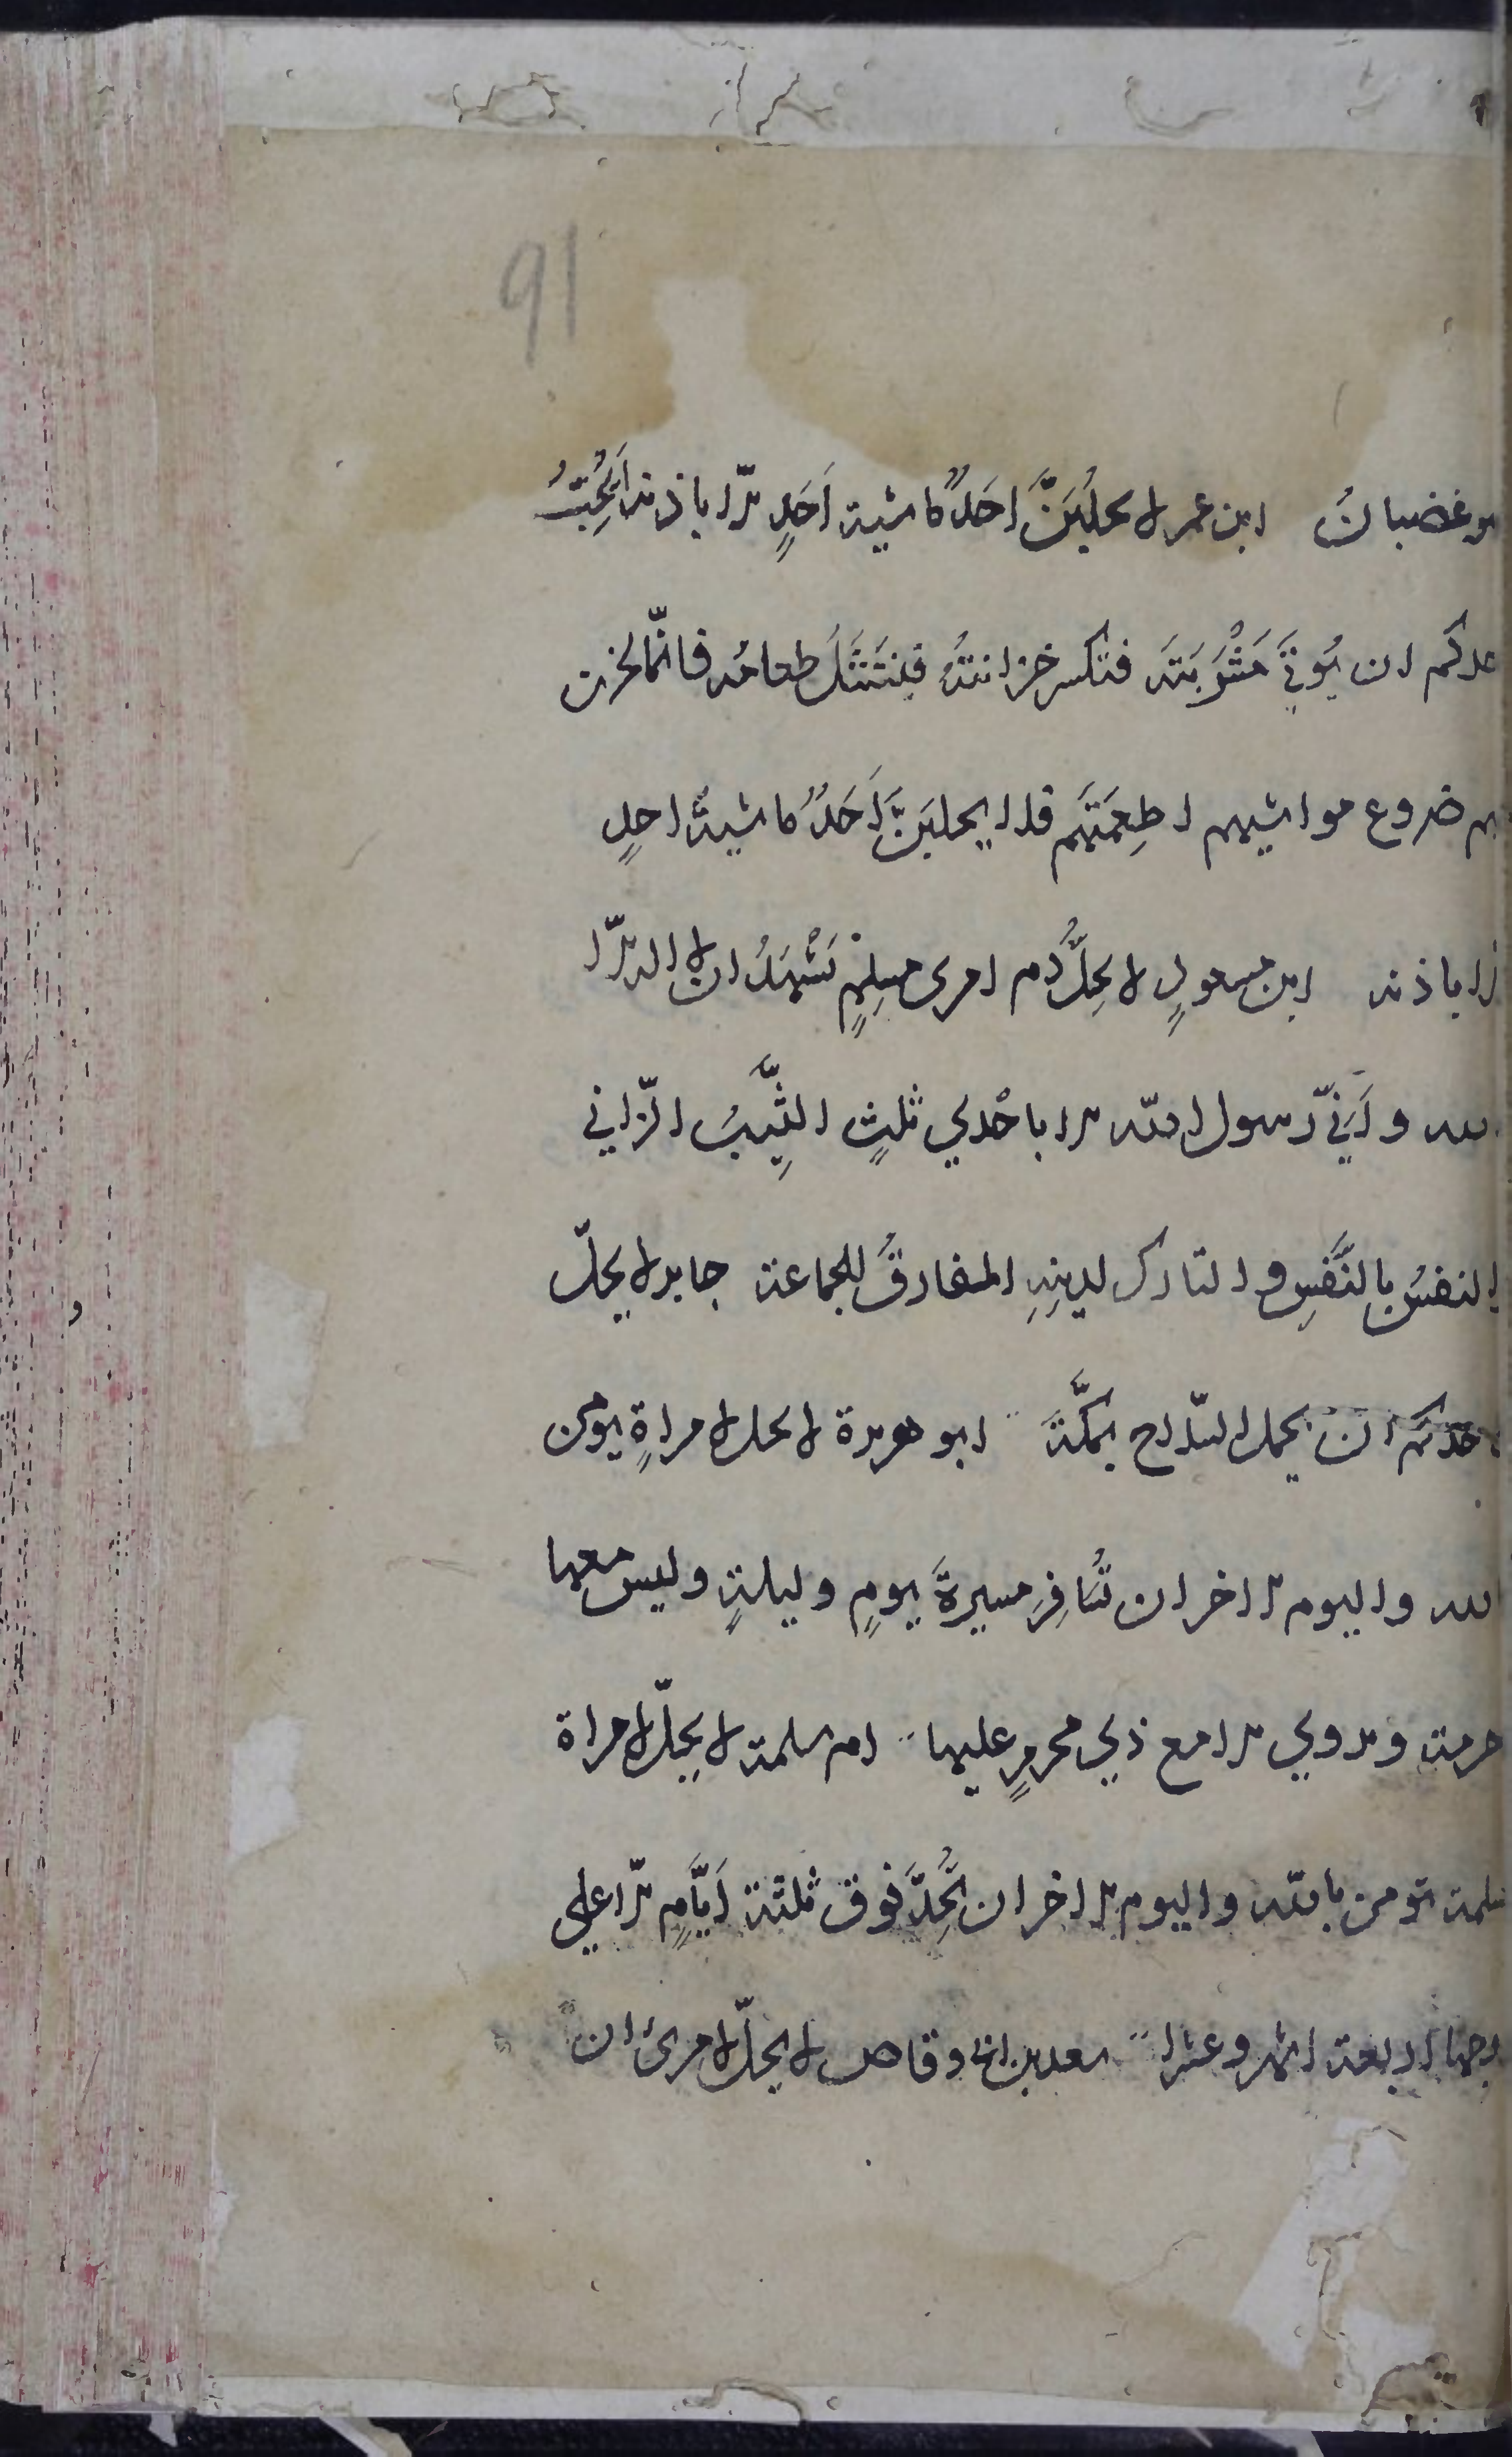 91
وهو غضبان ابن عمر لا يحلُبَنَّ احَدٌ ماشية اَحَدٍ الّا باذنه اَيُحِبُّ
احدكم ان يُوتَي مَشْرُبَتَه فتُكسر خزانتُهُ فيُنتَثَلَ طعامُه فانّما تخزن
لهم ضروع مواشيهم اطعِمَتَهم فلا يحلبَنَّ اَحَدٌ ماشيةَ احدٍ
الا باذنه ابن مسعودٍ لا يحِلُّ دم امرى مسلِمٍ يَشْهَدُ ان لا اله الّا
الله واَنِّي رسول الله الا باحْدي ثلثٍ الثَّيِّبُ الزّاني
والنفسُ بالنَّفسِ والتارك لدينِهِ المفارقُ للجماعة جابر لا يحلّ
لاحدكم ان يحمل السّلاح بمكَّةَ ابو هريرة لا يحل لامراةٍ يومن
بالله واليوم الاخر ان تُسافِرَ مسيرةَ يومٍ وليلةٍ وليس معها
حرمة ويروي الا مع ذي محرمٍ عليها ام سلمة لا يحِلّ لامراة
مسلمة تومن بالله واليوم الاخر ان تُحِدَّ فوق ثلثة اَيَّامٍ الّا علي
زوجها اربعة اشهر وعشرا سعد بن ابي وقاص لا يحلّ لامرئ ان